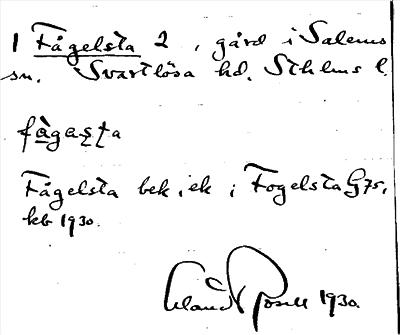 1 Fågelsta 2, gård i Salems
sn. Svartlösa hd. Sthlms l.
fàgasta
Fågelsta bek. ek i Fogelsta G75,
kb 1930.
Erland Rosell 1930